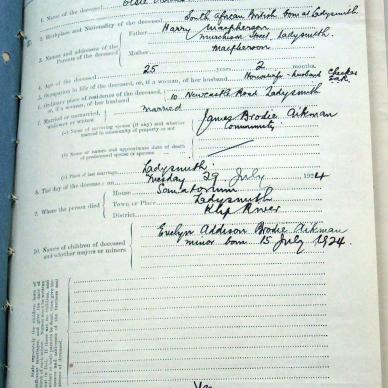 1. Name of the deceased
2. Birthplace and Nationality of the deceased South African British born at Ladysmith
3. Names and addresses of the Parents of the deceased
Father Harry Macpherson
Murchison Street, Ladysmith.
Mother Macpherson
4. Age of the deceased 25 years 2 months,
5. Occupation in life of the deceased, or, if a woman, of her husband Housewife - husband Checker
S.A.R.
6. Ordinary place of residence of the deceased, or, if a woman, of her husband 10 Newcastle Road Ladysmith
7. Married or unmarried, Married
(a) Name of surviving spouse (if any) and whether married in community of property or not
James Brodie Aikman
Community
(b) Name or names and approximate date of death of predeceased spouse or spouses
(c) Place of last marriage Ladysmith.
8. The day of the decease : on Tuesday 29 July 1924
9. Where the person died
House Sanatorium
Town or Place Ladysmith
District Klip River
10. Names of children of deceased and whether majors or minors
Evelyn Addison Brodie Aikman
minor born 15 July 1924.